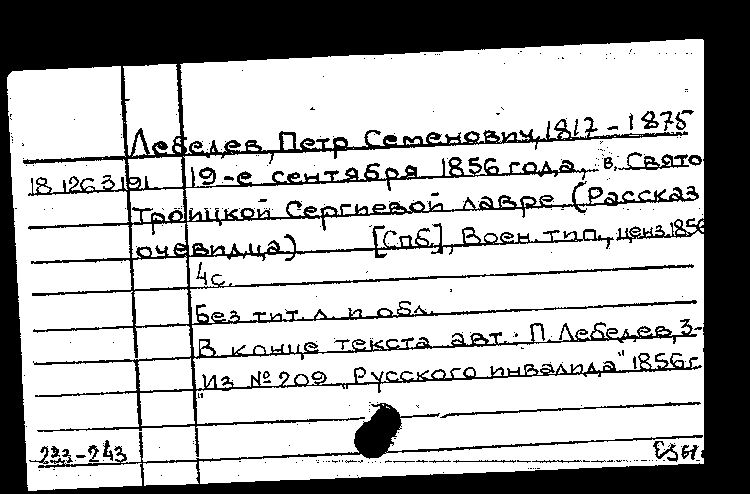 Лебедев, Петр Семенович, 1817-1875
18.126.3.191 19-е сентября 1856 года, в Свято-
Троицкой Сергиевой лавре. (Рассказ
очевидца) [Спб.], Воен. тип., ценз. 1856
4с.
Без тит. л. и обл.
В конце текста авт.: П. Лебедев, 3-
"Из № 209 "Русского инвалида" 1856г.
-243